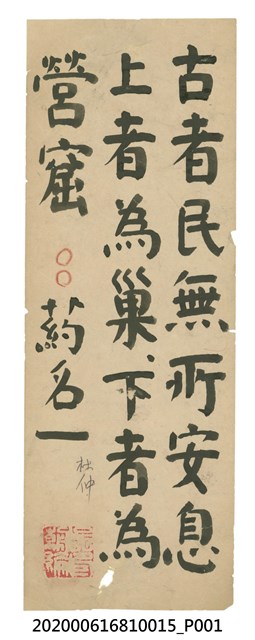 古者民無所安息
上者為巢下者為
營窟 ○○ 葯名一
杜仲
202000616810015_P001